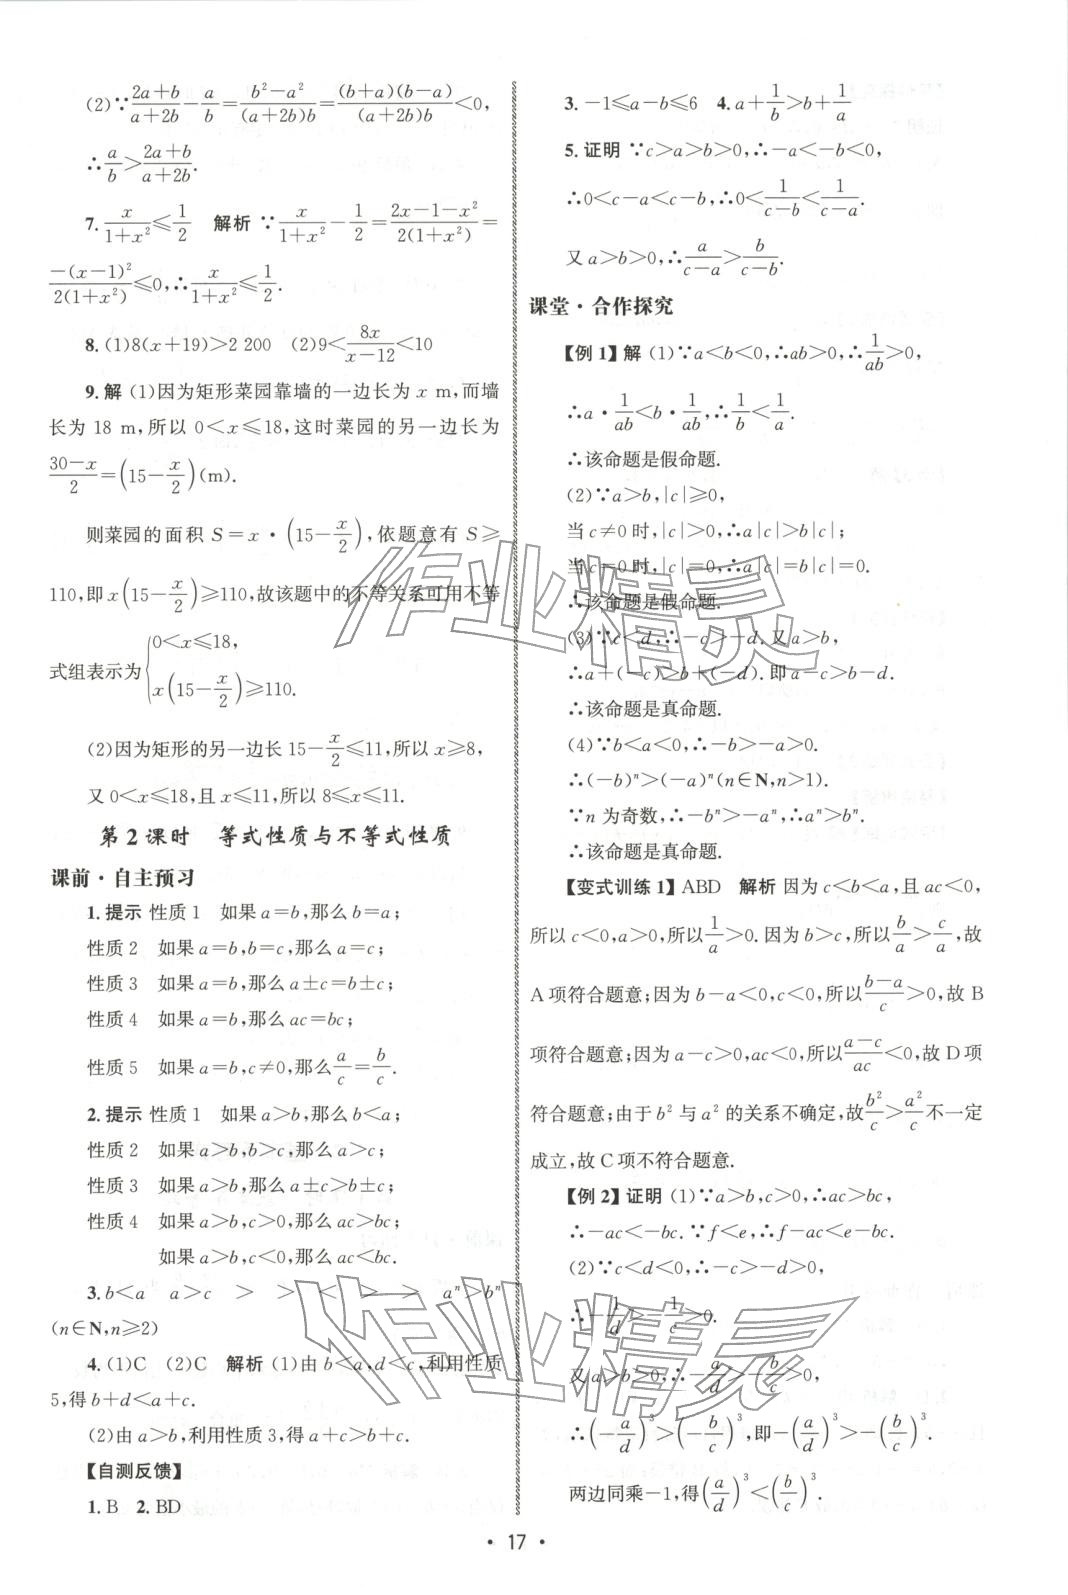 (2)∵(2a+b)/(a+2b)-a/b=(b²-a²)/((a+2b)b)=((b+a)(b-a))/((a+2b)b)<0,
∴a/b>(2a+b)/(a+2b).
7. x/(1+x²)≤1/2 解析 ∵x/(1+x²)-1/2=(2x-1-x²)/(2(1+x²))=
(-(x-1)²)/(2(1+x²))≤0,∴x/(1+x²)≤1/2.
8. (1)8(x+19)>2 200 (2)9<8x/(x-12)<10
9. 解 (1)因为矩形菜园靠墙的一边长为 x m,而墙
长为 18 m,所以 0<x≤18,这时菜园的另一边长为
(30-x)/2=(15-x/2)(m).
则菜园的面积 S=x·(15-x/2),依题意有 S≥
110,即 x(15-x/2)≥110,故该题中的不等关系可用不等
式组表示为{0<x≤18,
x(15-x/2)≥110.
(2)因为矩形的另一边长 15-x/2≤11,所以 x≥8,
又 0<x≤18,且 x≤11,所以 8≤x≤11.
第 2 课时 等式性质与不等式性质
课前·自主预习
1. 提示 性质 1 如果 a=b,那么 b=a;
性质 2 如果 a=b,b=c,那么 a=c;
性质 3 如果 a=b,那么 a±c=b±c;
性质 4 如果 a=b,那么 ac=bc;
性质 5 如果 a=b,c≠0,那么 a/c=b/c.
2. 提示 性质 1 如果 a>b,那么 b<a;
性质 2 如果 a>b,b>c,那么 a>c;
性质 3 如果 a>b,那么 a±c>b±c;
性质 4 如果 a>b,c>0,那么 ac>bc;
如果 a>b,c<0,那么 ac<bc.
3. b<a a>c > > > < > > aⁿ>bⁿ
(n∈N,n≥2)
4. (1)C (2)C 解析 (1)由 b<a,d<c,利用性质
5,得 b+d<a+c.
(2)由 a>b,利用性质 3,得 a+c>b+c.
【自测反馈】
1. B 2. BD
3. -1≤a-b≤6 4. a+1/b>b+1/a
5. 证明 ∵c>a>b>0,∴-a<-b<0,
∴0<c-a<c-b,∴0<1/(c-b)<1/(c-a).
又 a>b>0,∴a/(c-a)>b/(c-b).
课堂·合作探究
【例 1】解 (1)∵a<b<0,∴ab>0,∴1/ab>0,
∴a·1/ab<b·1/ab,∴1/b<1/a.
∴该命题是假命题.
(2)∵a>b,|c|≥0,
当 c≠0 时,|c|>0,∴a|c|>b|c|;
当 c=0 时,|c|=0,∴a|c|=b|c|=0.
∴该命题是假命题.
(3)∵c<d,∴-c>-d.又 a>b,
∴a+(-c)>b+(-d).即 a-c>b-d.
∴该命题是真命题.
(4)∵b<a<0,∴-b>-a>0.
∴(-b)ⁿ>(-a)ⁿ(n∈N,n>1).
∵n 为奇数,∴-bⁿ>-aⁿ,∴aⁿ>bⁿ.
∴该命题是真命题.
【变式训练 1】ABD 解析 因为 c<b<a,且 ac<0,
所以 c<0,a>0,所以 1/a>0.因为 b>c,所以 b/a>c/a,故
A 项符合题意;因为 b-a<0,c<0,所以 (b-a)/c>0,故 B
项符合题意;因为 a-c>0,ac<0,所以 (a-c)/ac<0,故 D 项
符合题意;由于 b² 与 a² 的关系不确定,故 b²/c>a²/c 不一定
成立,故 C 项不符合题意.
【例 2】证明 (1)∵a>b,c>0,∴ac>bc,
∴-ac<-bc.∵f<e,∴f-ac<e-bc.
(2)∵c<d<0,∴-c>-d>0,
∴-1/d>-1/c>0.
又 a>b>0,∴-a/d>-b/c>0,
∴(-a/d)³>(-b/c)³,即-(a/d)³>-(b/c)³.
两边同乘-1,得(a/d)³<(b/c)³.
· 17 ·
作业精灵
作业精灵